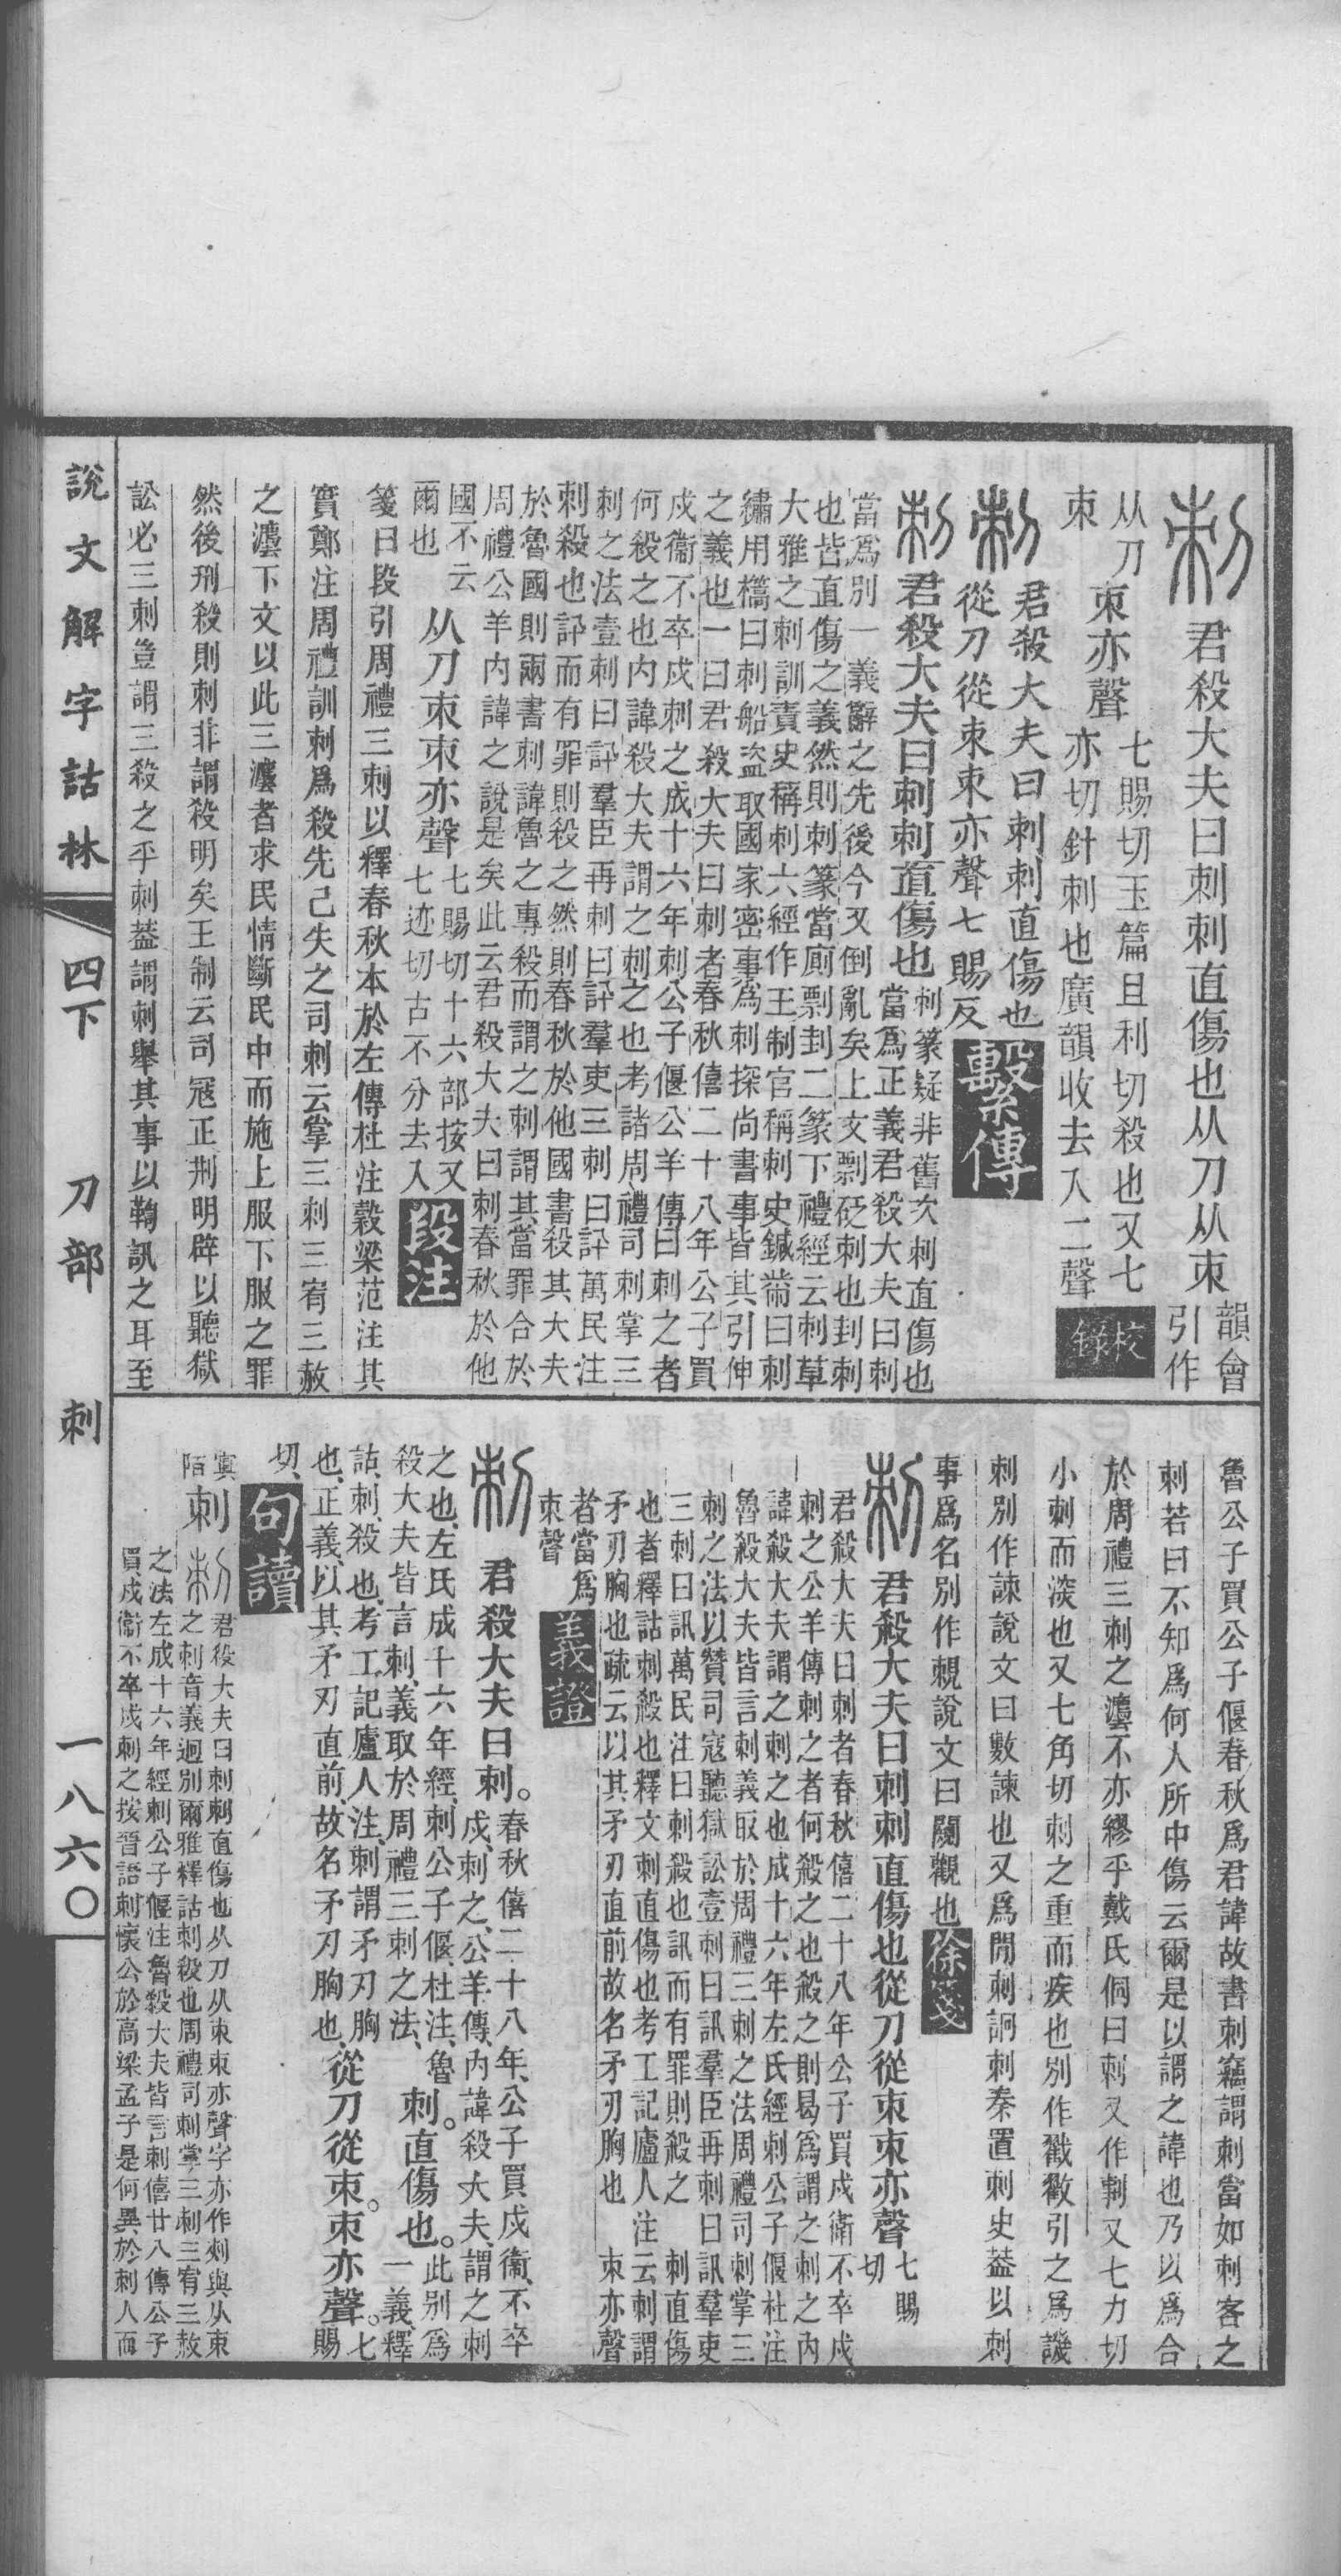 刺 君殺大夫曰刺刺直傷也从刀从朿 韻會引作
从刀朿亦聲 七賜切玉篇且利切殺也又七
朿 亦切針刺也廣韻收去入二聲 校錄
刺 君殺大夫曰刺刺直傷也
從刀從朿朿亦聲七賜反 繫傳
刺 君殺大夫曰刺刺直傷也 刺篆疑非舊次刺直傷也
當爲正義君殺大夫曰刺
當爲別一義辭之先後今又倒亂矣上文剽砭刺也刲刺
也皆直傷之義然則刺篆當廁剽刲二篆下禮經云刺草
大雅之刺訓責史稱刺六經作王制官稱刺史鍼黹曰刺
繡用檇曰刺船盜取國家密事爲刺探尚書事皆其引伸
之義也一曰君殺大夫曰刺者春秋僖二十八年公子買
戍衞不卒戍刺之成十六年刺公子偃公羊傳曰刺之者
何殺之也內諱殺大夫謂之刺之也考諸周禮司刺掌三
刺之法壹刺曰訊羣臣再刺曰訊羣吏三刺曰訊萬民注
刺殺也訊而有罪則殺之然則春秋於他國書殺其大夫
於魯國則兩書刺諱魯之專殺而謂之刺謂其當罪合於
周禮公羊內諱之說是矣此云君殺大夫曰刺春秋於他
國不云
爾也 从刀朿朿亦聲 七賜切十六部按又
七迹切古不分去入 段注
箋曰段引周禮三刺以釋春秋本於左傳杜注穀梁范注其
實鄭注周禮訓刺爲殺先己失之司刺云掌三刺三宥三赦
之灋下文以此三灋者求民情斷民中而施上服下服之罪
然後刑殺則刺非謂殺明矣王制云司寇正刑明辟以聽獄
訟必三刺豈謂三殺之乎刺葢謂刺舉其事以鞫訊之耳至
魯公子買公子偃春秋爲君諱故書刺竊謂刺當如刺客之
刺若曰不知爲何人所中傷云爾是以謂之諱也乃以爲合
於周禮三刺之灋不亦繆乎戴氏侗曰刺又作㓨又七力切
小刺而淡也又七角切刺之重而疾也別作戳㪬引之爲譏
刺別作諫說文曰數諫也又爲閒刺詗刺秦置刺史葢以刺
事爲名別作覞說文曰闚觀也 徐箋
刺 君殺大夫曰刺刺直傷也從刀從朿朿亦聲 七賜切
君殺大夫曰刺者春秋僖二十八年公子買戍衛不卒戍
刺之公羊傳刺之者何殺之也殺之則曷爲謂之刺之內
諱殺大夫謂之刺之也成十六年左氏經刺公子偃杜注
魯殺大夫皆言刺義取於周禮三刺之法周禮司刺掌三
刺之法以贊司寇聽獄訟壹刺曰訊羣臣再刺曰訊羣吏
三刺曰訊萬民注曰刺殺也訊而有罪則殺之 刺直傷
也者釋詁刺殺也釋文刺直傷也考工記廬人注云刺謂
矛刃胸也疏云以其矛刃直前故名矛刃胸也 朿亦聲
者當爲
朿聲 義證
刺 君殺大夫曰刺。 春秋僖二十八年、公子買戍衞、不卒
戍、刺之、公羊傳、內諱殺大夫、謂之刺
之也、左氏成十六年經、刺公子偃、杜注、魯
殺大夫皆言刺、義取於周禮三刺之法、 刺。直傷也。 此別爲
一義、釋
詁、刺、殺也、考工記廬人注、刺謂矛刃胸
也、正義、以其矛刃直前、故名矛刃胸也、 從刀從朿。朿亦聲。 七賜
切、 句讀
寘陌 刺 君殺大夫曰刺刺直傷也从刀从朿朿亦聲字亦作刾與从束
之刺音義迥別爾雅釋詁刺殺也周禮司刺掌三刺三宥三赦
之法左成十六年經刺公子偃注魯殺大夫皆言刺僖廿八傳公子
買戍衞不卒戍刺之按晉語刺懷公於高梁孟子是何異於刺人而
說文解字詁林 四下 刀部 刺 一八六〇